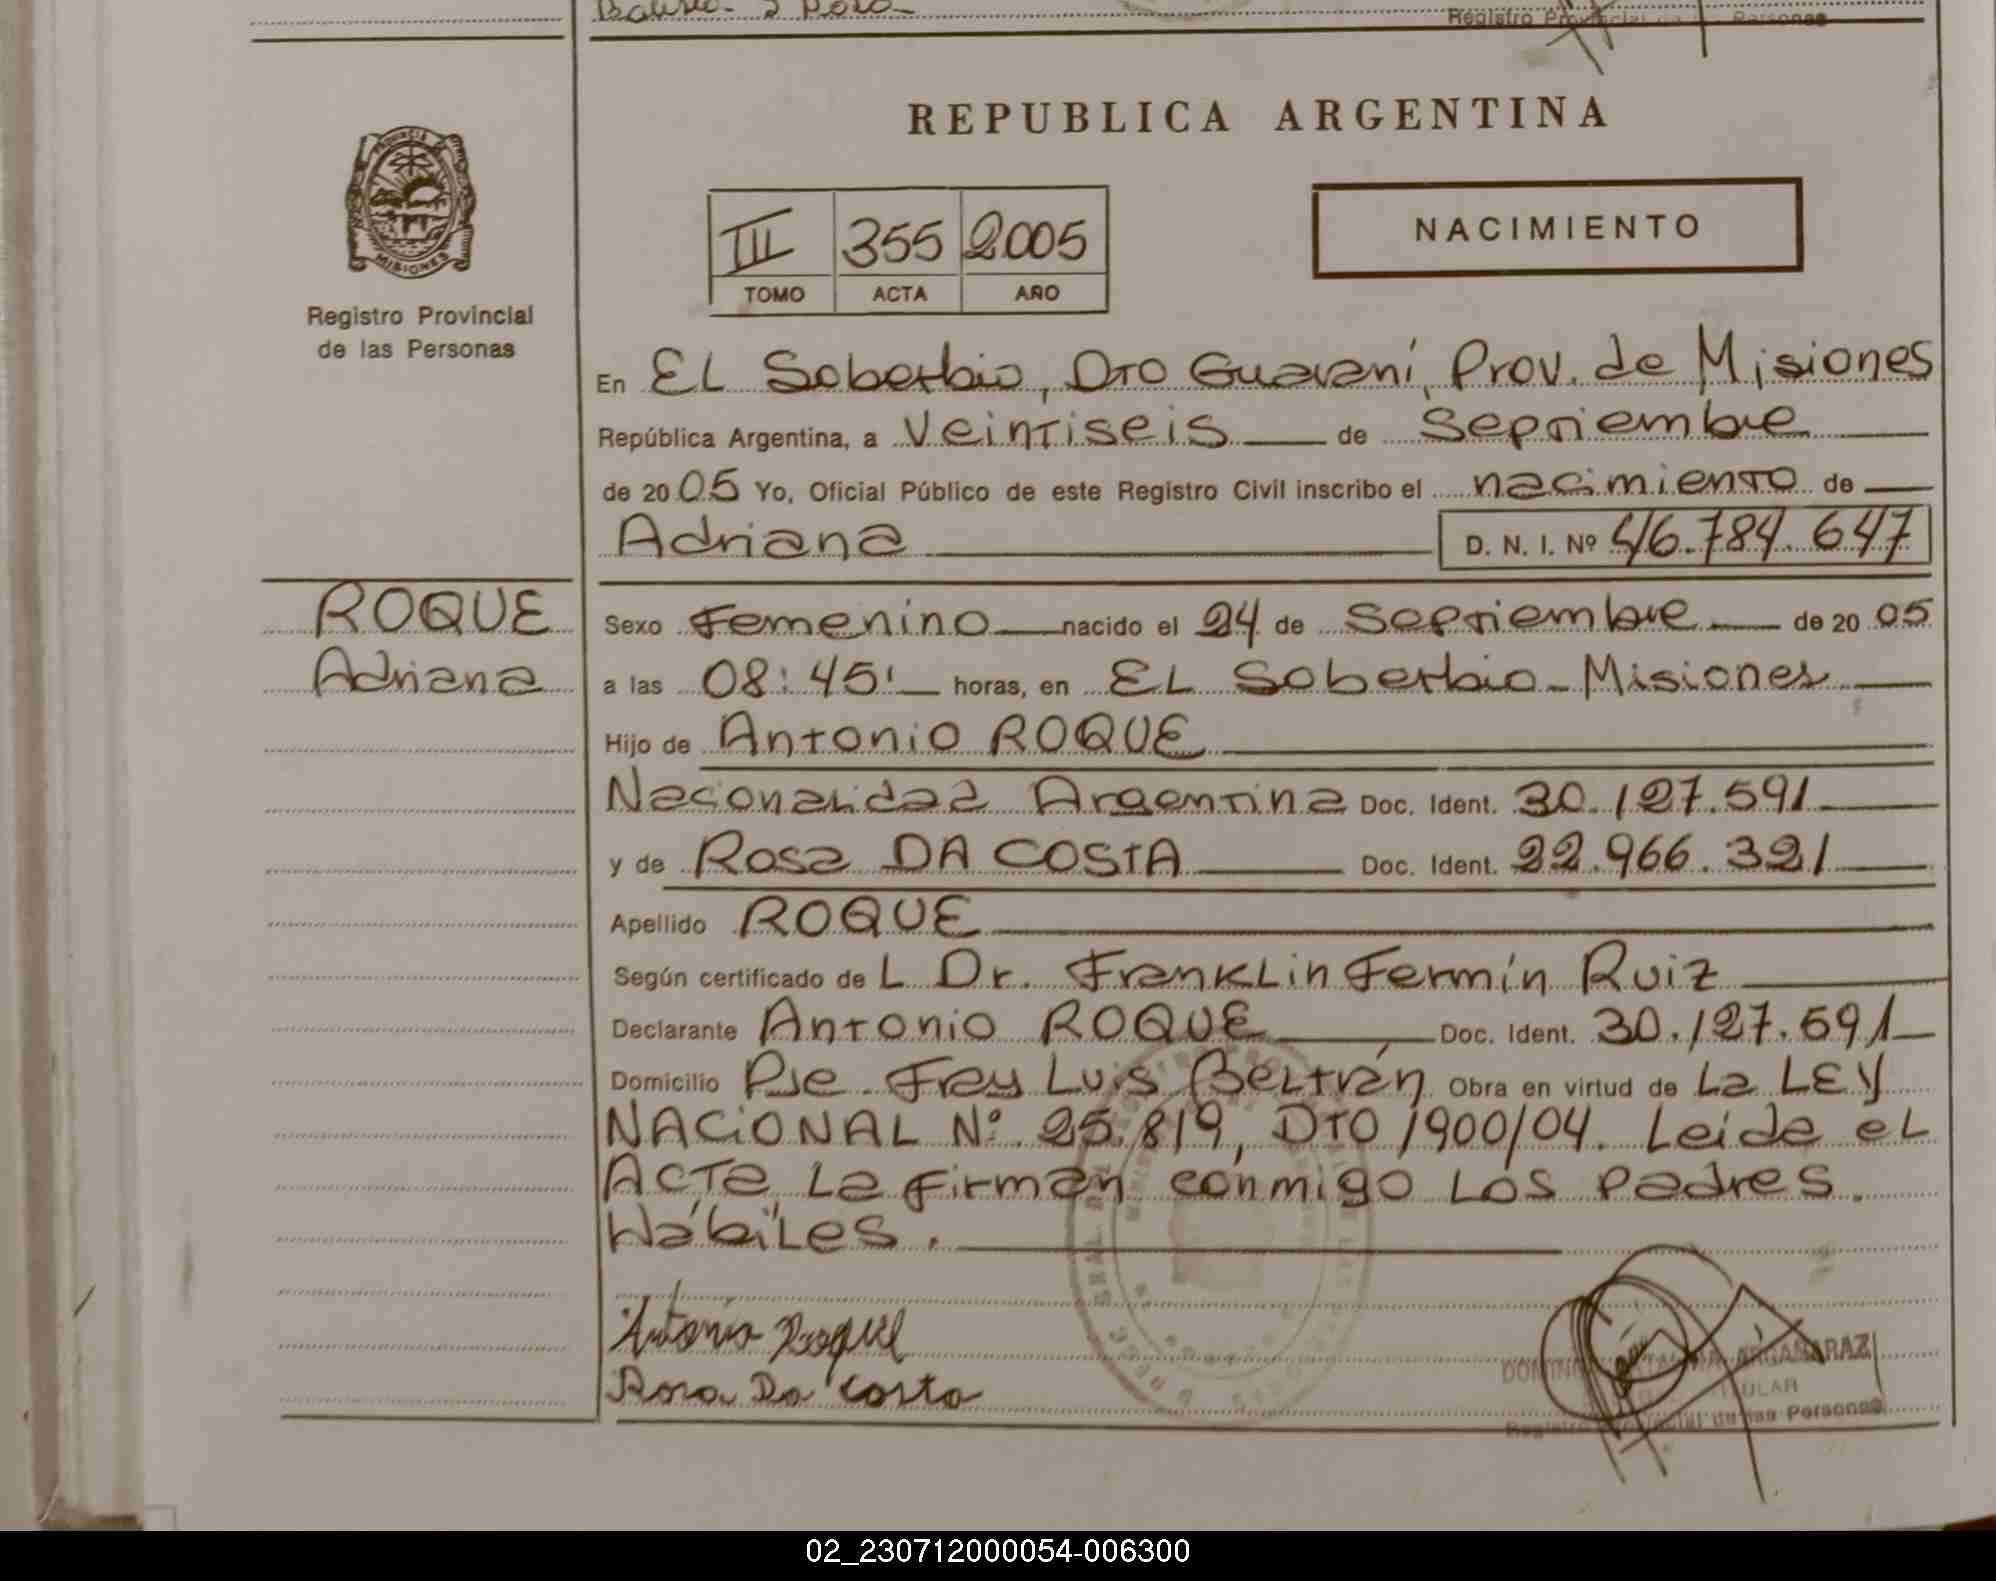 Registro Provincial de las Personas
REPUBLICA ARGENTINA
PROVINCIA
MISIONES
Registro Provincial
de las Personas
III 355 2005
TOMO ACTA AÑO
NACIMIENTO
En EL Soberbio, DTO Guaraní, Prov. de Misiones
República Argentina, a Veintiseis de Septiembre
de 2005 Yo, Oficial Público de este Registro Civil inscribo el nacimiento de
Adriana D. N. I. Nº 46.784.647
ROQUE
Adriana
Sexo Femenino nacido el 24 de Septiembre de 2005
a las 08:45' horas, en EL Soberbio - Misiones
Hijo de Antonio ROQUE
Nacionalidad Argentina Doc. Ident. 30.127.591
y de Rosa DA COSTA Doc. Ident. 22.966.321
Apellido ROQUE
Según certificado de L Dr. Franklin Fermín Ruiz
Declarante Antonio ROQUE Doc. Ident. 30.127.591
Domicilio Pje Fray Luis Beltrán Obra en virtud de La LEY
NACIONAL Nº 25.819, DTO 1900/04. Leida el
ACTa La firman conmigo Los padres
Hábiles.
Antonio Roque
Rosa Da Costa
ARGAÑARAZ
TITULAR
Registro Provincial de las Personas
02_230712000054-006300